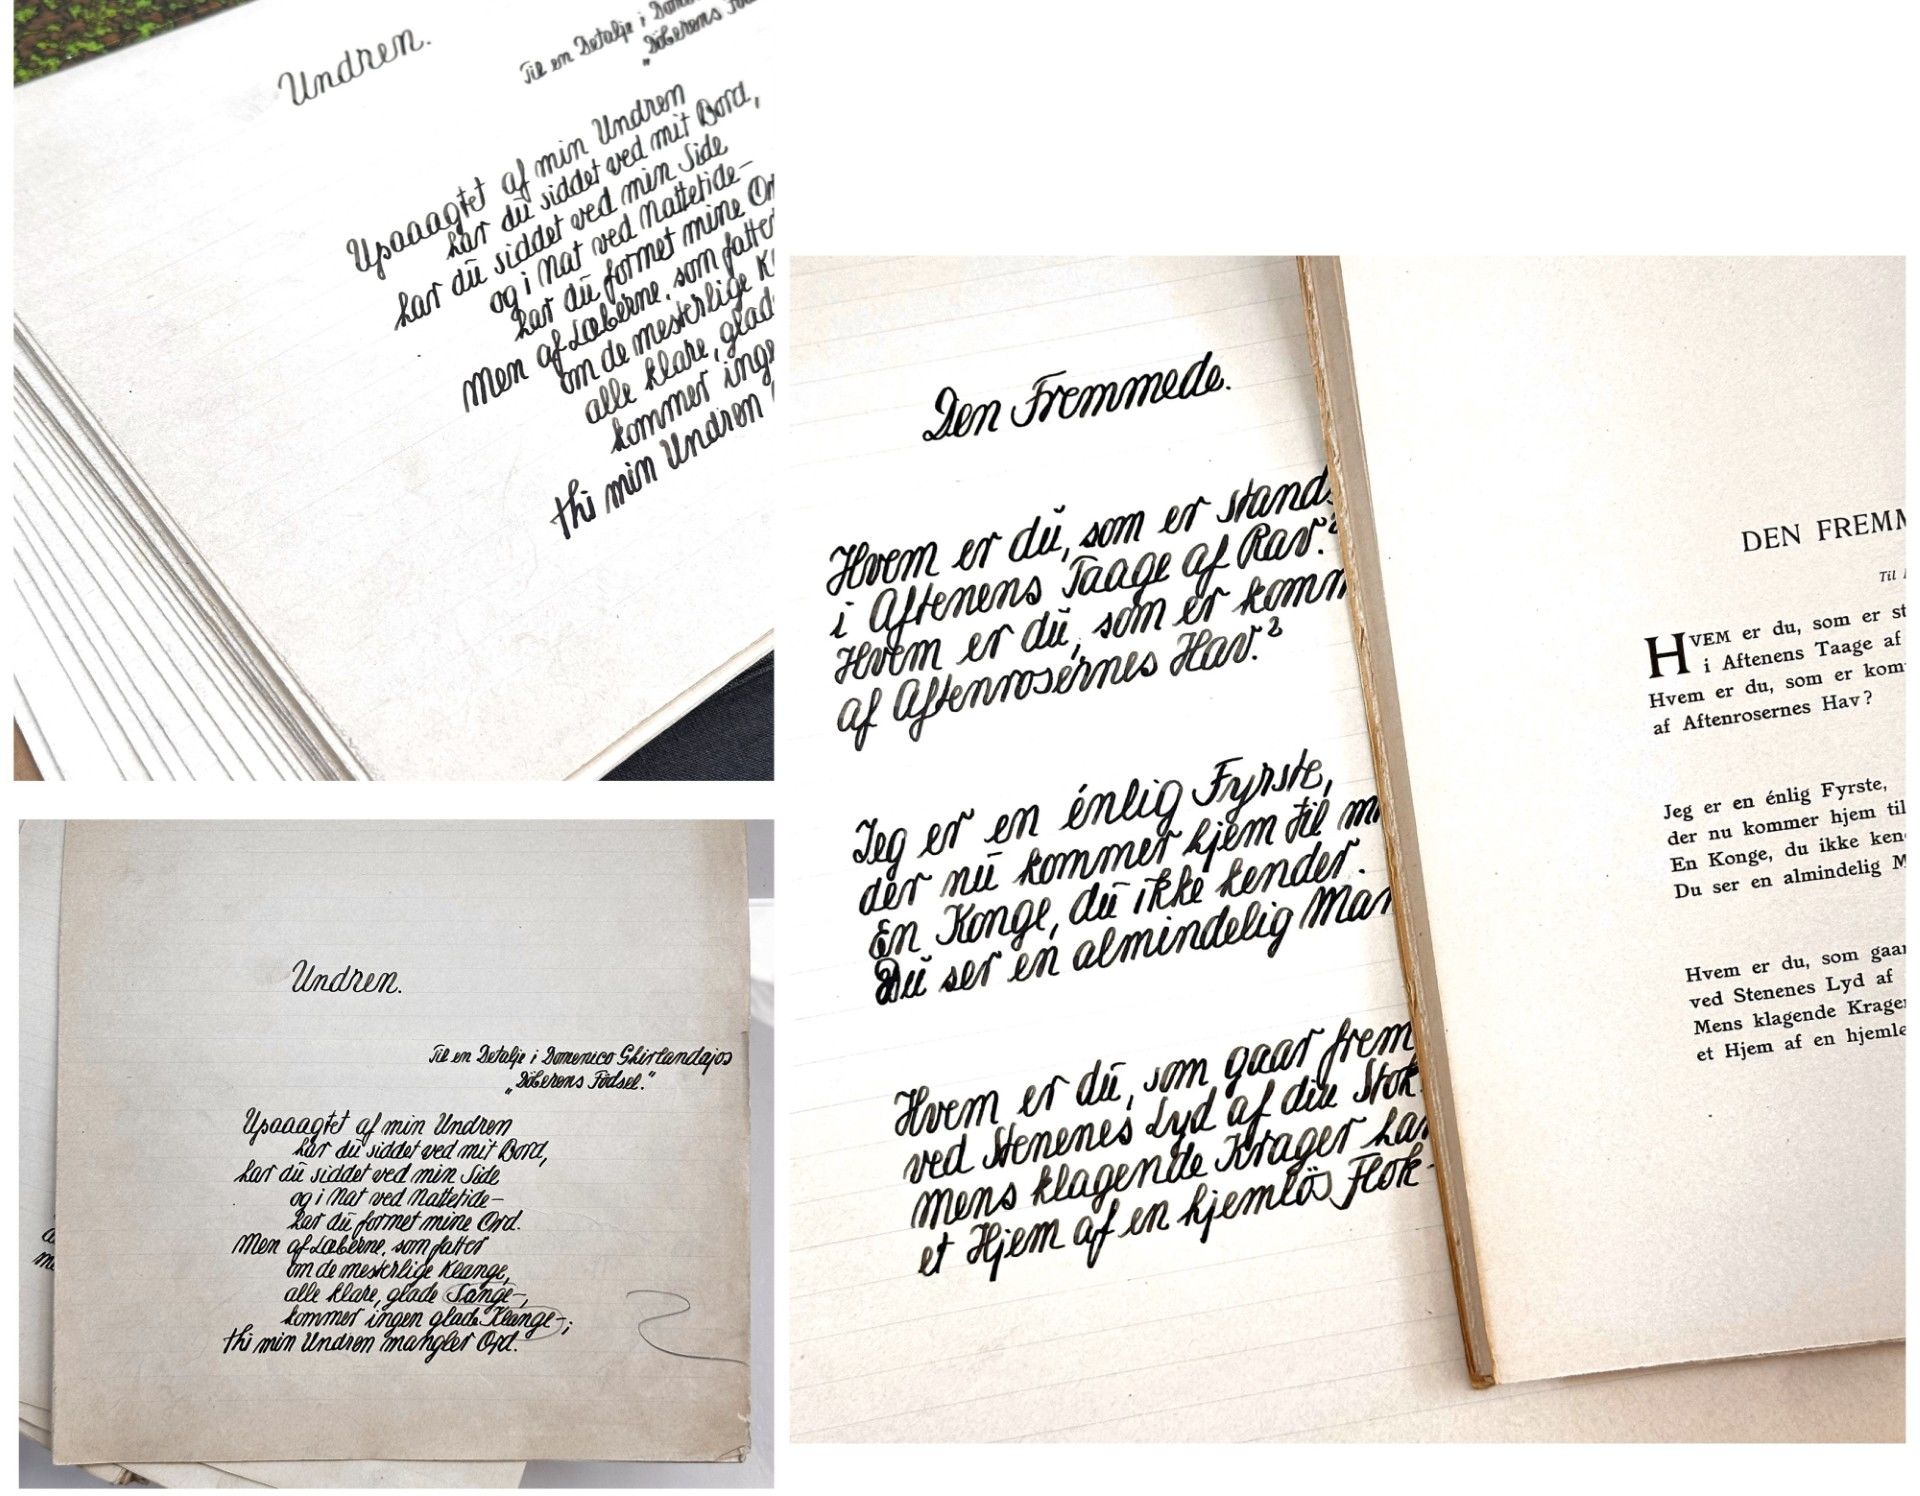 Undren.
Til en Detalje i Dome
"Döberens Föd
Upaaagtet af min Undren
har dŭ siddet ved mit Bord,
har dŭ siddet ved min Side
og i Nat ved Nattetide—
har dŭ formet mine Or
Men af Læberne, som fatter
om de mesterlige K
alle klare, glad
kommer inge
thi min Undren
Undren.
Til en Detalje i Domenico Ghirlandajos
"Döberens Födsel."
Upaaagtet af min Undren
har dŭ siddet ved mit Bord,
har dŭ siddet ved min Side
og i Nat ved Nattetide—
har dŭ formet mine Ord.
Men af Læberne, som fatter
om de mesterlige Klange,
alle klare, glade Sange—,
kommer ingen glade Klange—;
thi min Undren mangler Ord.
Den Fremmede.
Hvem er dŭ, som er stand
i Aftenens Taage af Rav.?
Hvem er dŭ, som er komm
af Aftenrosernes Hav.?
Jeg er en énlig Fyrste,
der nŭ kommer hjem til m
En Konge, dŭ ikke kender.
Dŭ ser en almindelig Man
Hvem er dŭ, som gaar frem
ved Stenenes Lyd af din Stok
mens klagende Krager har
et Hjem af en hjemlös Flok—
DEN FREMM
Til
HVEM er du, som er st
i Aftenens Taage af
Hvem er du, som er kom
af Aftenrosernes Hav?
Jeg er en énlig Fyrste,
der nu kommer hjem til
En Konge, du ikke ken
Du ser en almindelig M
Hvem er du, som gaar
ved Stenenes Lyd af
Mens klagende Krage
et Hjem af en hjemlø